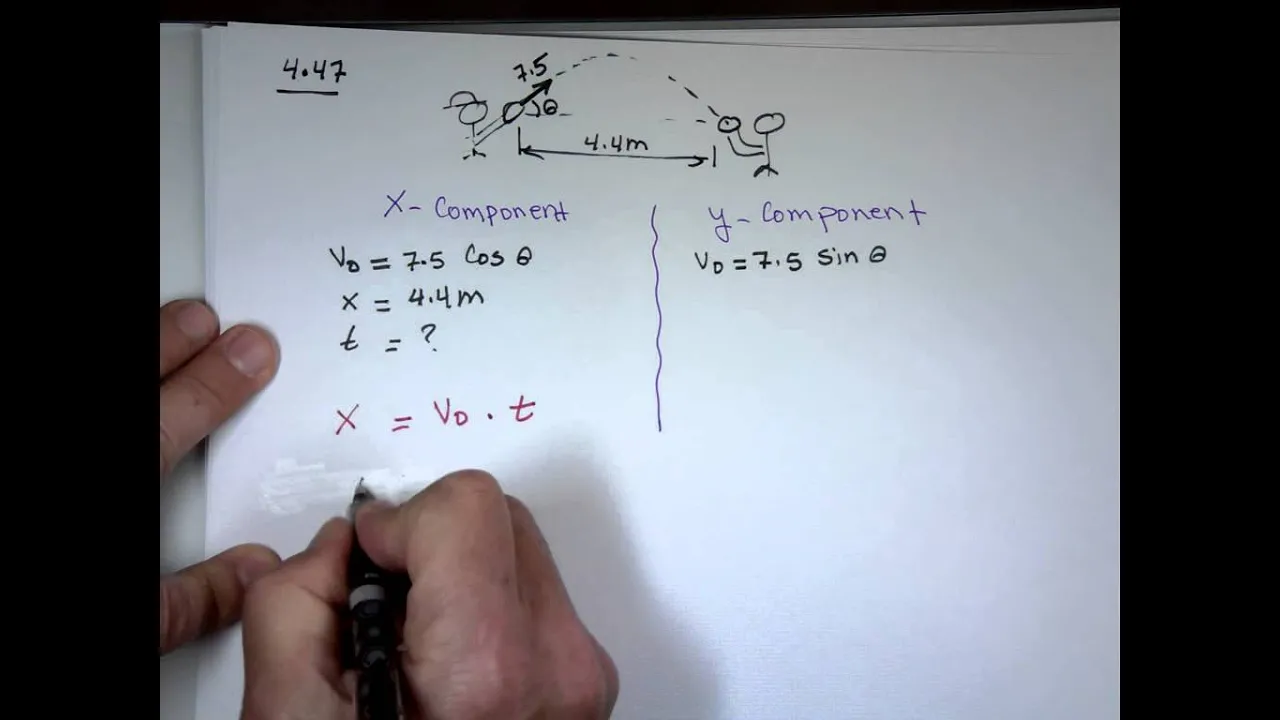 4.47
7.5
θ
4.4m
X-Component
V0 = 7.5 Cos θ
x = 4.4m
t = ?
X = V0 · t
y-Component
V0 = 7.5 sin θ